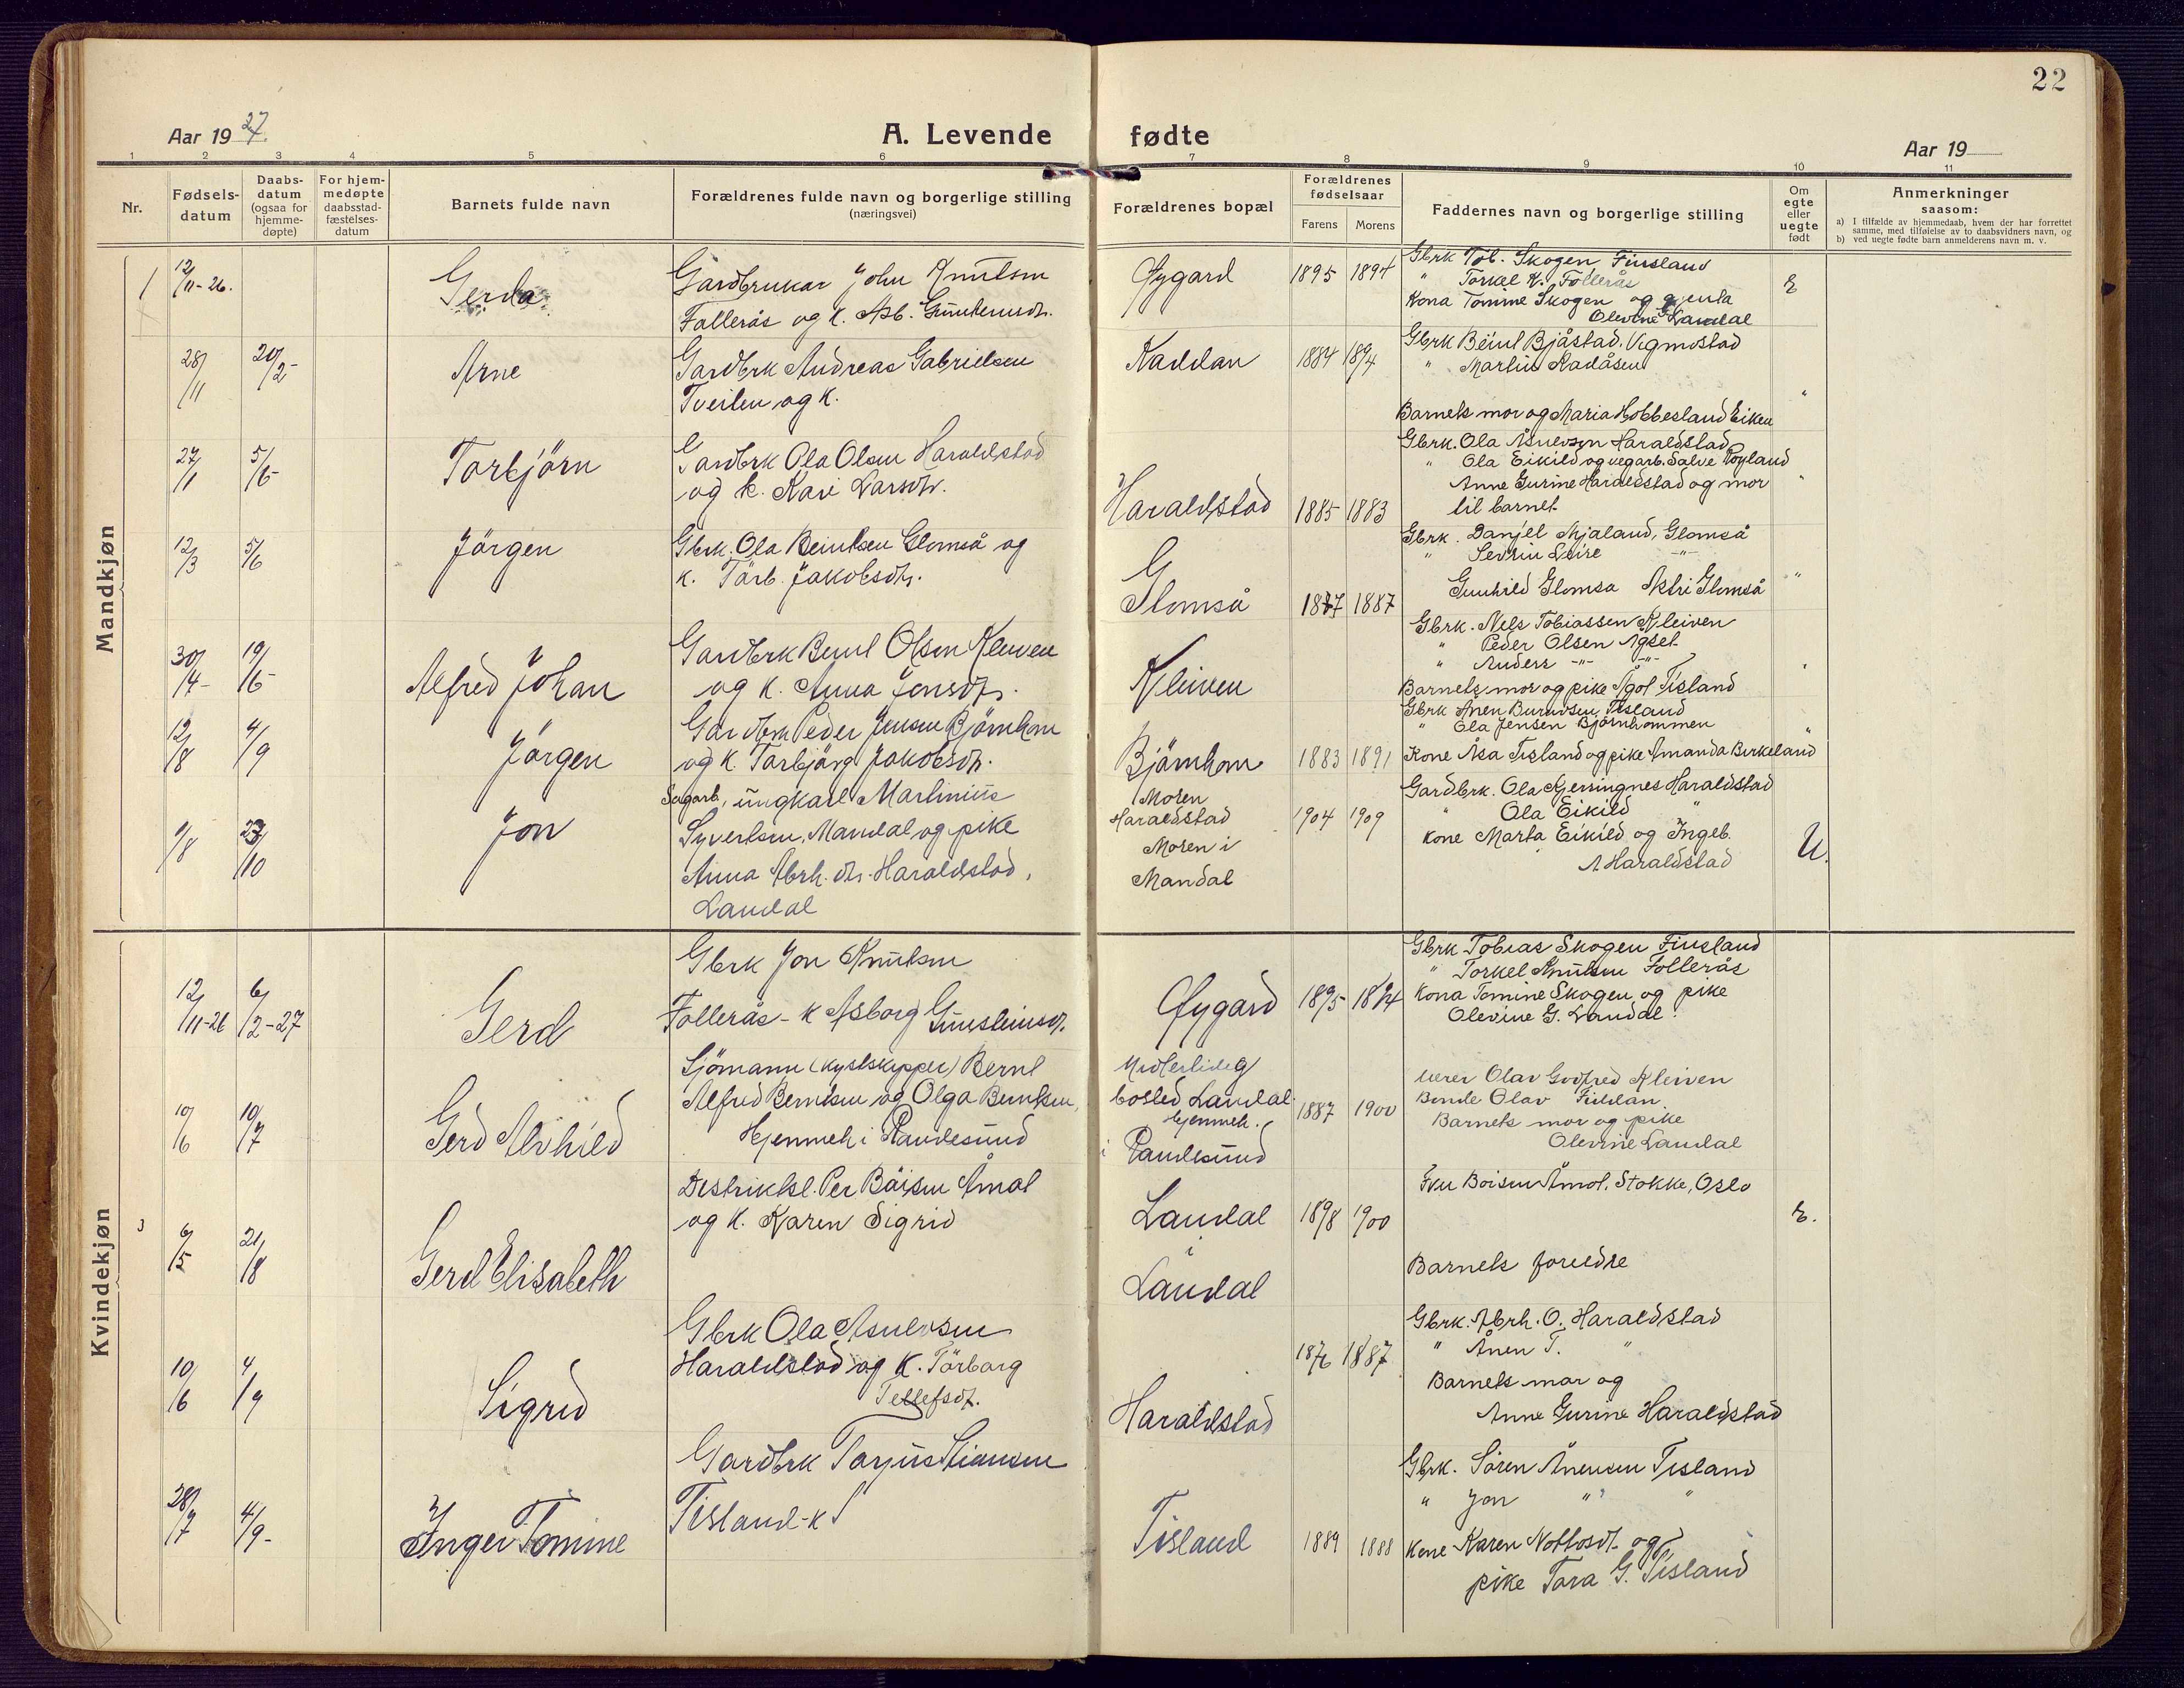 22
Aar 19 27.
A. Levende fødte
Aar 19
1 2 3 4 5 6 7 8 9 10 11
Nr.
Fødsels-
datum
Daabs-
datum
(ogsaa for
hjemme-
døpte)
For hjem-
medøpte
daabsstad-
fæstelses-
datum
Barnets fulde navn
Forældrenes fulde navn og borgerlige stilling
(næringsvei)
Forældrenes bopæl
Forældrenes
fødselsaar
Farens Morens
Faddernes navn og borgerlige stilling
Om
egte
eller
uegte
født
Anmerkninger
saasom:
a) I tilfælde av hjemmedaab, hvem der har forrettet
samme, med tilføielse av to daabsvidners navn, og
b) ved uegte fødte barn anmelderens navn m. v.
Mandkjøn
1 12/11-26. Gerda
Gardbrukar John Knutsen
Follerås og k. Asb.
Øygard 1895 1894
Gbrk Tob. Skogen Finsland
" Torkel K. Follerås
Kona Tomine Skogen og gjenta
Olevine Landal
E
28/11 20/2- Arne
Gardbrk Andreas Gabrielsen
Tveiten og k.
Kaddan 1884 1894
Gbrk Beint Bjåstad, Vigmostad
" Martin
Barnets mor og Maria Hobbesland Eiken
"
27/1 5/6- Torbjörn
Gardbrk Ola Olsen Haraldstad
og k. Kari Larsdtr.
Haraldstad 1885 1883
Gbrk. Ola Åsulvsen Haraldstad
" Ola Eikild og vegarb. Salve Röyland
Anne Gurine Haraldstad og mor
til barnet
"
12/3 5/6 Jörgen
Gbrk. Ola Beintsen Glomså og
k. Tarb. Jakobsdtr.
Glomså 1887 1887
Gbrk. Danjel Mjaland, Glomså
" Sevrin Leire -"-
Gunhild Glomsa Astri Glomså
"
30/4- 19/6- Alfred Johan
Gardbrk Bernt Olsen Kleiven
og k. Anna Jensdtr.
Kleiven
Gbrk. Nels Tobiassen Kleiven
" Peder Olsen Ågset
" Anders -"- -"-
Barnets mor og pike Ågot Tisland
12/8 4/9 Jörgen
Gardbrk Peder Jensen Björnhom
og k. Torbjörg Jakobsdtr.
Björnhom 1883 1891
Gbrk Ånen Tisland
" Ola Jensen Björnhommen
Kone Åsa Tisland og pike Amanda Birkeland
"
9/8 23/10 Jon
Sagarb., ungkarl Martinius
Syvertsen, Mandal og pike
Anna Abrh. dtr. Haraldstad,
Landal
Moren
Haraldstad
Moren i
Mandal
1904 1909
Gardbrk. Ola Gjerningnes Haraldstad
" Ola Eikild "
kone Marta Eikild og Ingeb.
A Haraldstad
U.
Kvindekjøn
12/11-26 6/2-27 Gerd
Gbrk Jon Knutsen
Follerås - k Asborg Gunsteinsdtr.
Øygard 1895 1894
Gbrk Tobias Skogen Finsland
" Torkel Knutsen Follerås
Kona Tomine Skogen og pike
Olevine G. Landal.
10/6 10/7 Gerd Alvhild
Sjömann (kystskipper) Bernt
Alfred Berntsen og Olga Berntsen,
Hjemmeh. i Randesund
Midlertidig
bosted Landal.
hjemmeh.
i Randesund
1887 1900
lærer Olav Godfred Kleiven
Bonde Olav
Barnets mor og pike
Olevine Landal
3 6/5 21/8 Gerd Elisabeth
Destriktsl. Per Båisen Åmot
og k. Karen Sigrid
Landal 1898 1900
i
Landal
Iver Boisen Åmot. Stokke, Oslo
Barnets foreldre
E.
10/6 4/9 Sigrid
Gbrk Ola Åsulvsen
Haraldstad og k. Törborg
Tellefsdtr.
Haraldstad 1876 1887
Gbrk. Abrh. O. Haraldstad
" Ånen T. "
Barnets mor og
Anne Gurine Haraldstad
28/7 4/9- Inger Tomine
Gardbrk Tarjus
Tisland - k
Tisland 1889 1888
Gbrk. Sören Ånensen Tisland
" Jon " "
Kone Karen Nottosdt. og
pike Tora G. Tisland